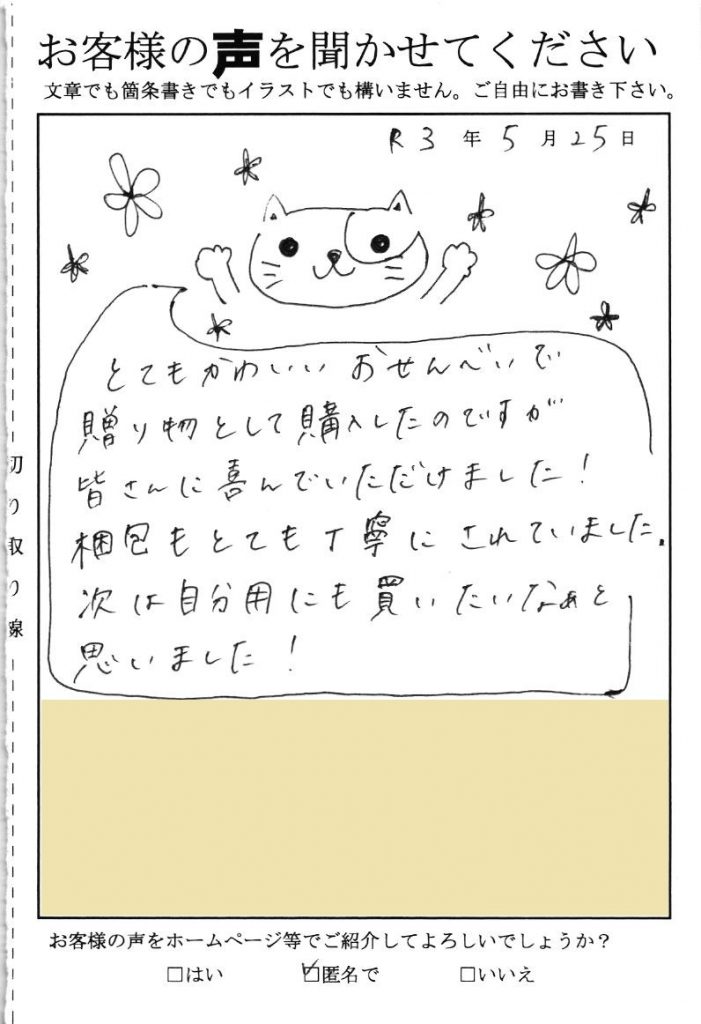 お客様の声を聞かせてください
文章でも箇条書きでもイラストでも構いません。ご自由にお書き下さい。
R3年5月25日
とてもかわいいおせんべいで
贈り物として購入したのですが
皆さんに喜んでいただけました！
梱包もとても丁寧にされていました。
次は自分用にも買いたいなぁと
思いました！
切り取り線
お客様の声をホームページ等でご紹介してよろしいでしょうか？
□はい ☑匿名で □いいえ